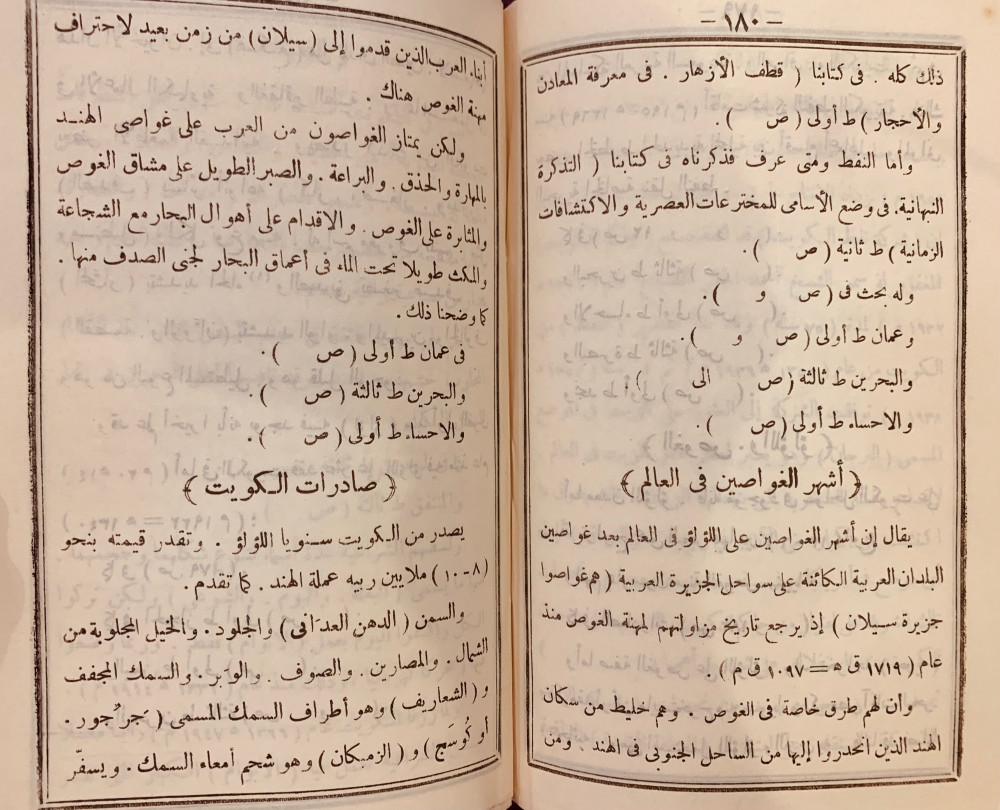 — ١٨٠ —
ذلك كله . فى كتابنا ( قطف الأزهار . فى معرفة المعادن
والأحجار ) ط أولى ( ص ) .
وأما النفط ومتى عرف فذكرناه فى كتابنا ( التذكرة
النبهانية . فى وضع الأسامى للمخترعات العصرية والاكتشافات
الزمانية ) ط ثانية ( ص ) .
وله بحث فى ( ص و ) .
وعمان ط أولى ( ص و ) .
والبحرين ط ثالثة ( ص الى ) .
والاحساء ط أولى ( ص ) .
﴿ أشهر الغواصين فى العالم ﴾
يقال إن أشهر الغواصين على اللؤلؤ فى العالم بعد غواصين
البلدان العربية الكائنة على سواحل الجزيرة العربية ( هم غواصوا
جزيرة سيلان ) إذ يرجع تاريخ مزاولتهم لمهنة الغوص منذ
عام ( ١٧١٩ ق ه = ١٠٩٧ ق م ) .
وأن لهم طرق خاصة فى الغوص . وهم خليط من سكان
الهند الذين انحدروا إليها من الساحل الجنوبى فى الهند . ومن
أبناء العرب الذين قدموا إلى ( سيلان ) من زمن بعيد لاحتراف
مهنة الغوص هناك .
ولكن يمتاز الغواصون من العرب على غواصى الهند
بالمهارة والحذق . والبراعة . والصبر الطويل على مشاق الغوص
والمثابرة على الغوص . والاقدام على أهوال البحار مع الشجاعة
والمكث طويلا تحت الماء فى أعماق البحار لجنى الصدف منها .
كما وضحنا ذلك .
فى عمان ط أولى ( ص ) .
والبحرين ط ثالثة ( ص ) .
والاحساء ط أولى ( ص ) .
﴿ صادرات الكويت ﴾
يصدر من الكويت سنويا اللؤلؤ . وتقدر قيمته بنحو
( ٨ - ١٠ ) ملايين ربيه عملة الهند . كما تقدم .
والسمن ( الدهن العدانى ) والجلود . والخيل المجلوبة من
الشمال . والمصارين . والصوف . والوبر . والسمك المجفف
و ( الشعاريف ) وهو أطراف السمك المسمى ( جرجور .
أو كوسج ) و ( الزمبكان ) وهو شحم أمعاء السمك . ويسفّر